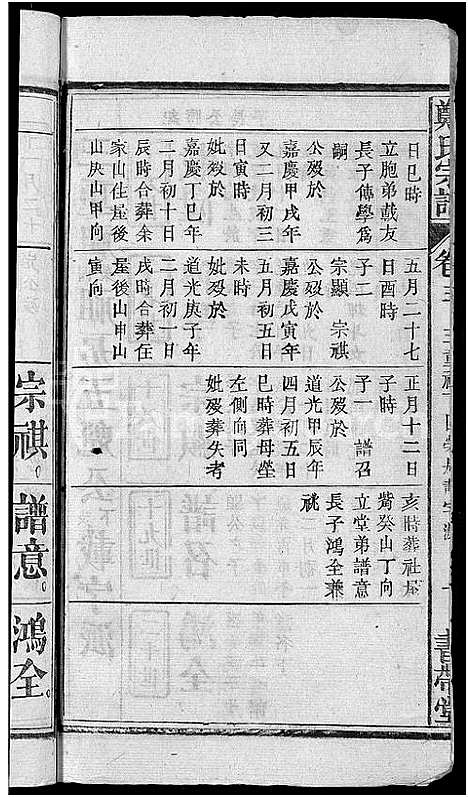 鄭氏宗譜
卷三
書帶堂
日巳時
立胞弟載友
長子傳學爲
嗣
公歿於
嘉慶甲戌年
又二月初三
日寅時
妣歿於
嘉慶丁巳年
二月初十日
辰時合葬余
家山住屋後
山庚山甲向
五月二十七
日酉時
子二
宗顯 宗祺
公歿於
嘉慶戊寅年
五月初五日
未時
妣歿於
道光庚子年
二月初一日
戌時合葬住
屋後山申山
寅向
正月十二日
子時
子一 譜召
公歿於
道光甲辰年
四月初五日
巳時葬母塋
左側向同
妣歿葬失考
亥時葬社屋
觜癸山丁向
立堂弟譜意
長子鴻全兼
祧
宗祺。譜意。鴻全。